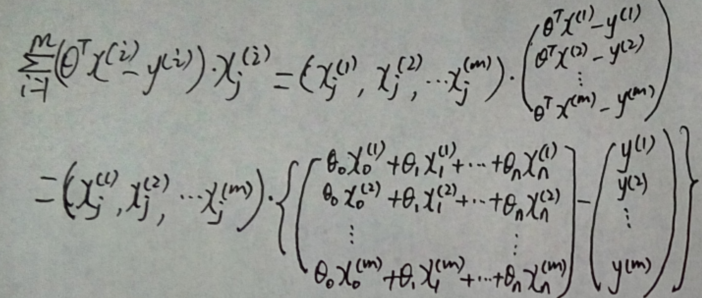 $$\sum_{i=1}^{m}(\theta^T x^{(i)} - y^{(i)}) \cdot x_j^{(i)} = (x_j^{(1)}, x_j^{(2)}, \cdots x_j^{(m)}) \cdot \begin{pmatrix} \theta^T x^{(1)} - y^{(1)} \\ \theta^T x^{(2)} - y^{(2)} \\ \vdots \\ \theta^T x^{(m)} - y^{(m)} \end{pmatrix}$$
$$= (x_j^{(1)}, x_j^{(2)}, \cdots x_j^{(m)}) \cdot \left\{ \begin{pmatrix} \theta_0 x_0^{(1)} + \theta_1 x_1^{(1)} + \cdots + \theta_n x_n^{(1)} \\ \theta_0 x_0^{(2)} + \theta_1 x_1^{(2)} + \cdots + \theta_n x_n^{(2)} \\ \vdots \qquad \vdots \\ \theta_0 x_0^{(m)} + \theta_1 x_1^{(m)} + \cdots + \theta_n x_n^{(m)} \end{pmatrix} - \begin{pmatrix} y^{(1)} \\ y^{(2)} \\ \vdots \\ y^{(m)} \end{pmatrix} \right\}$$